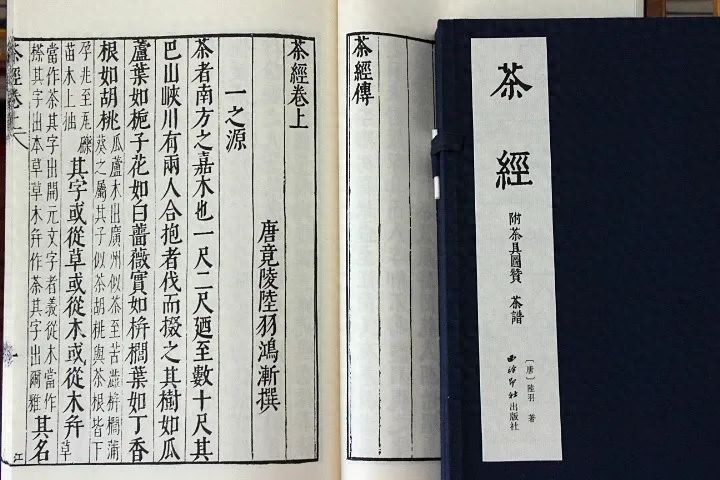 茶經
附茶具圖贊 茶譜
〔唐〕陸羽 著
西泠印社出版社
茶經傳
茶經卷上
唐竟陵陸羽鴻漸撰
一之源
茶者南方之嘉木也一尺二尺廼至數十尺其
巴山峽川有兩人合抱者伐而掇之其樹如瓜
蘆葉如梔子花如白薔薇實如栟櫚葉如丁香
根如胡桃瓜蘆木出廣州似茶至苦澁栟櫚蒲葵之屬其子似茶胡桃與茶根皆下
孕兆至瓦礫苗木上抽其字或從草或從木或從木并草
當作茶其字出開元文字者義從木當作搽其字出本草草木并作茶其字出爾雅其名
茶經卷上
江